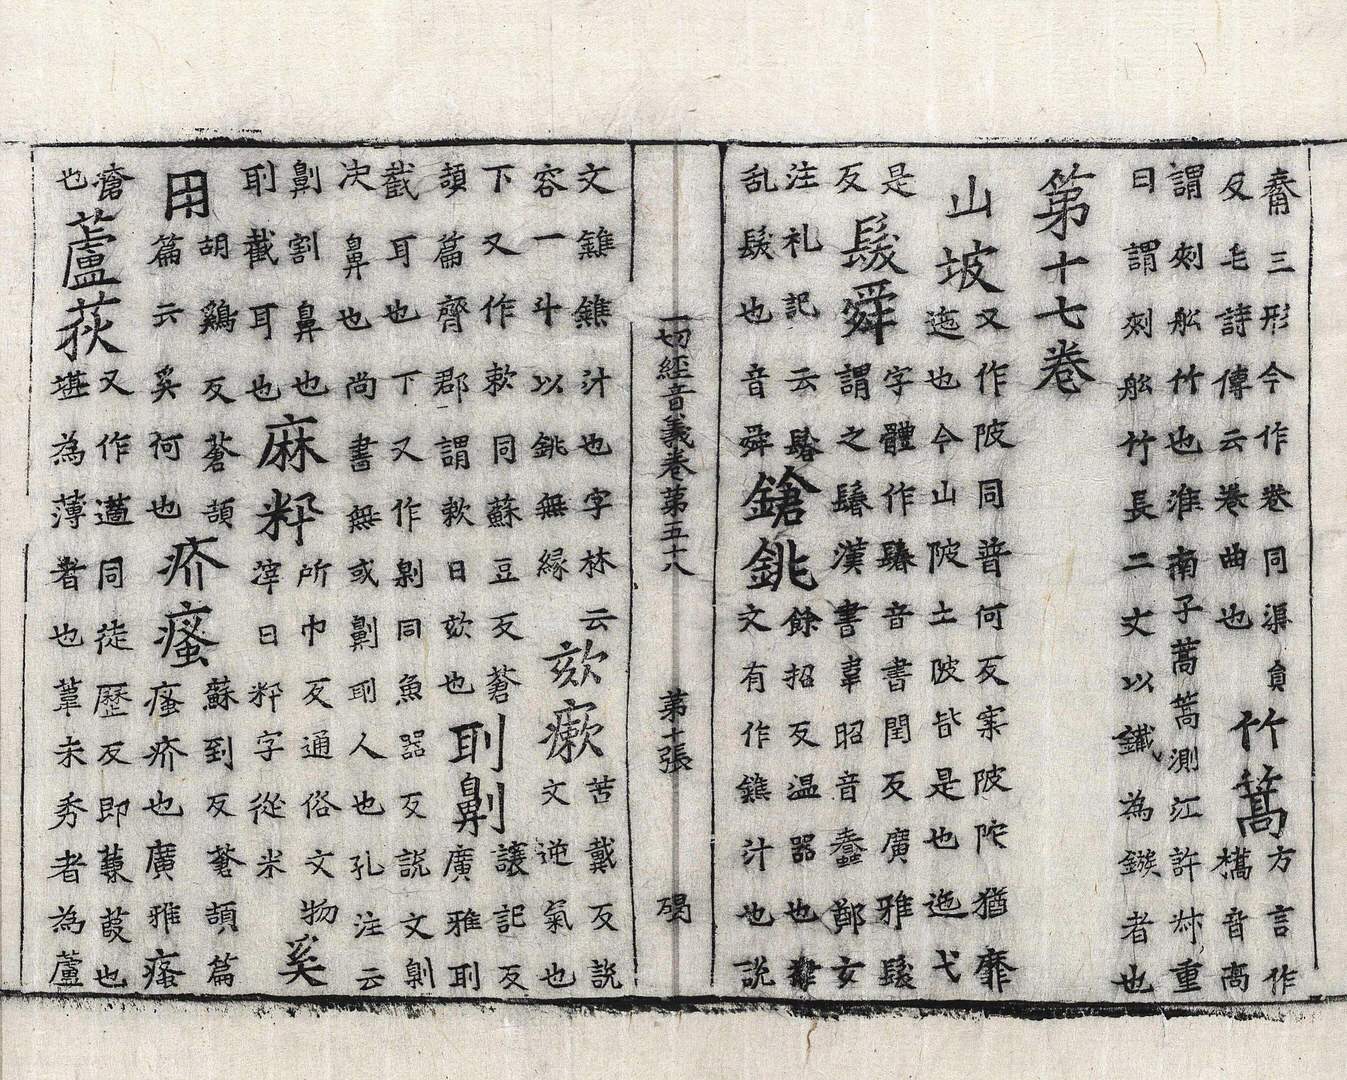 𦋅三形今作卷同渠負
反毛詩傳云卷曲也
竹篙
方言作
檇音高
謂刺舩竹也淮南子蒿篙測江許叔重
曰謂刺舩竹長二丈以鐵為鏃者也
第十七卷
山坡
又作陂同普何反案陂陀猶靡
迤也今山陂土陂皆是也迆弋
是
反
髮舜
字體作鬊音書閏反廣雅髮
謂之鬊漢書韋昭音蠢鄞女
注礼記云鬊
乱髮也音舜
鎗銚
餘招反温器也律
文有作鐎汁也說
一切經音義卷第五十八
第十張
碣
文鐎鐎汁也字林云
容一斗以銚無緣
欬瘷
苦戴反說
文逆氣也
下又作欶同蘇豆反蒼
頡篇齊郡謂欶曰欬也
刵劓
讓記反
廣雅刵
截耳也下又作劓同魚器反說文劓
決鼻也尚書無或劓刵人也孔注云
劓割鼻也
刵截耳也
麻籸
所巾反通俗文物
滓曰籸字從米
奚
用
胡鷄反蒼頡
篇云奚何也
疥瘙
蘇到反蒼頡篇
瘙疥也廣雅瘙
瘡
也
蘆荻
又作藡同徒歷反即蒹葭也
堪為薄者也葦未秀者為蘆